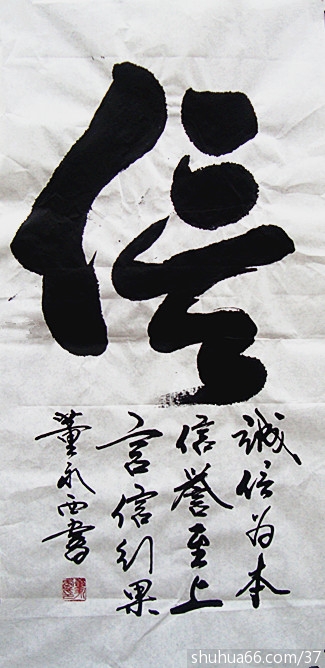 信
誠信为本
信誉至上
言信行果
董永西書
shuhua66.com/37